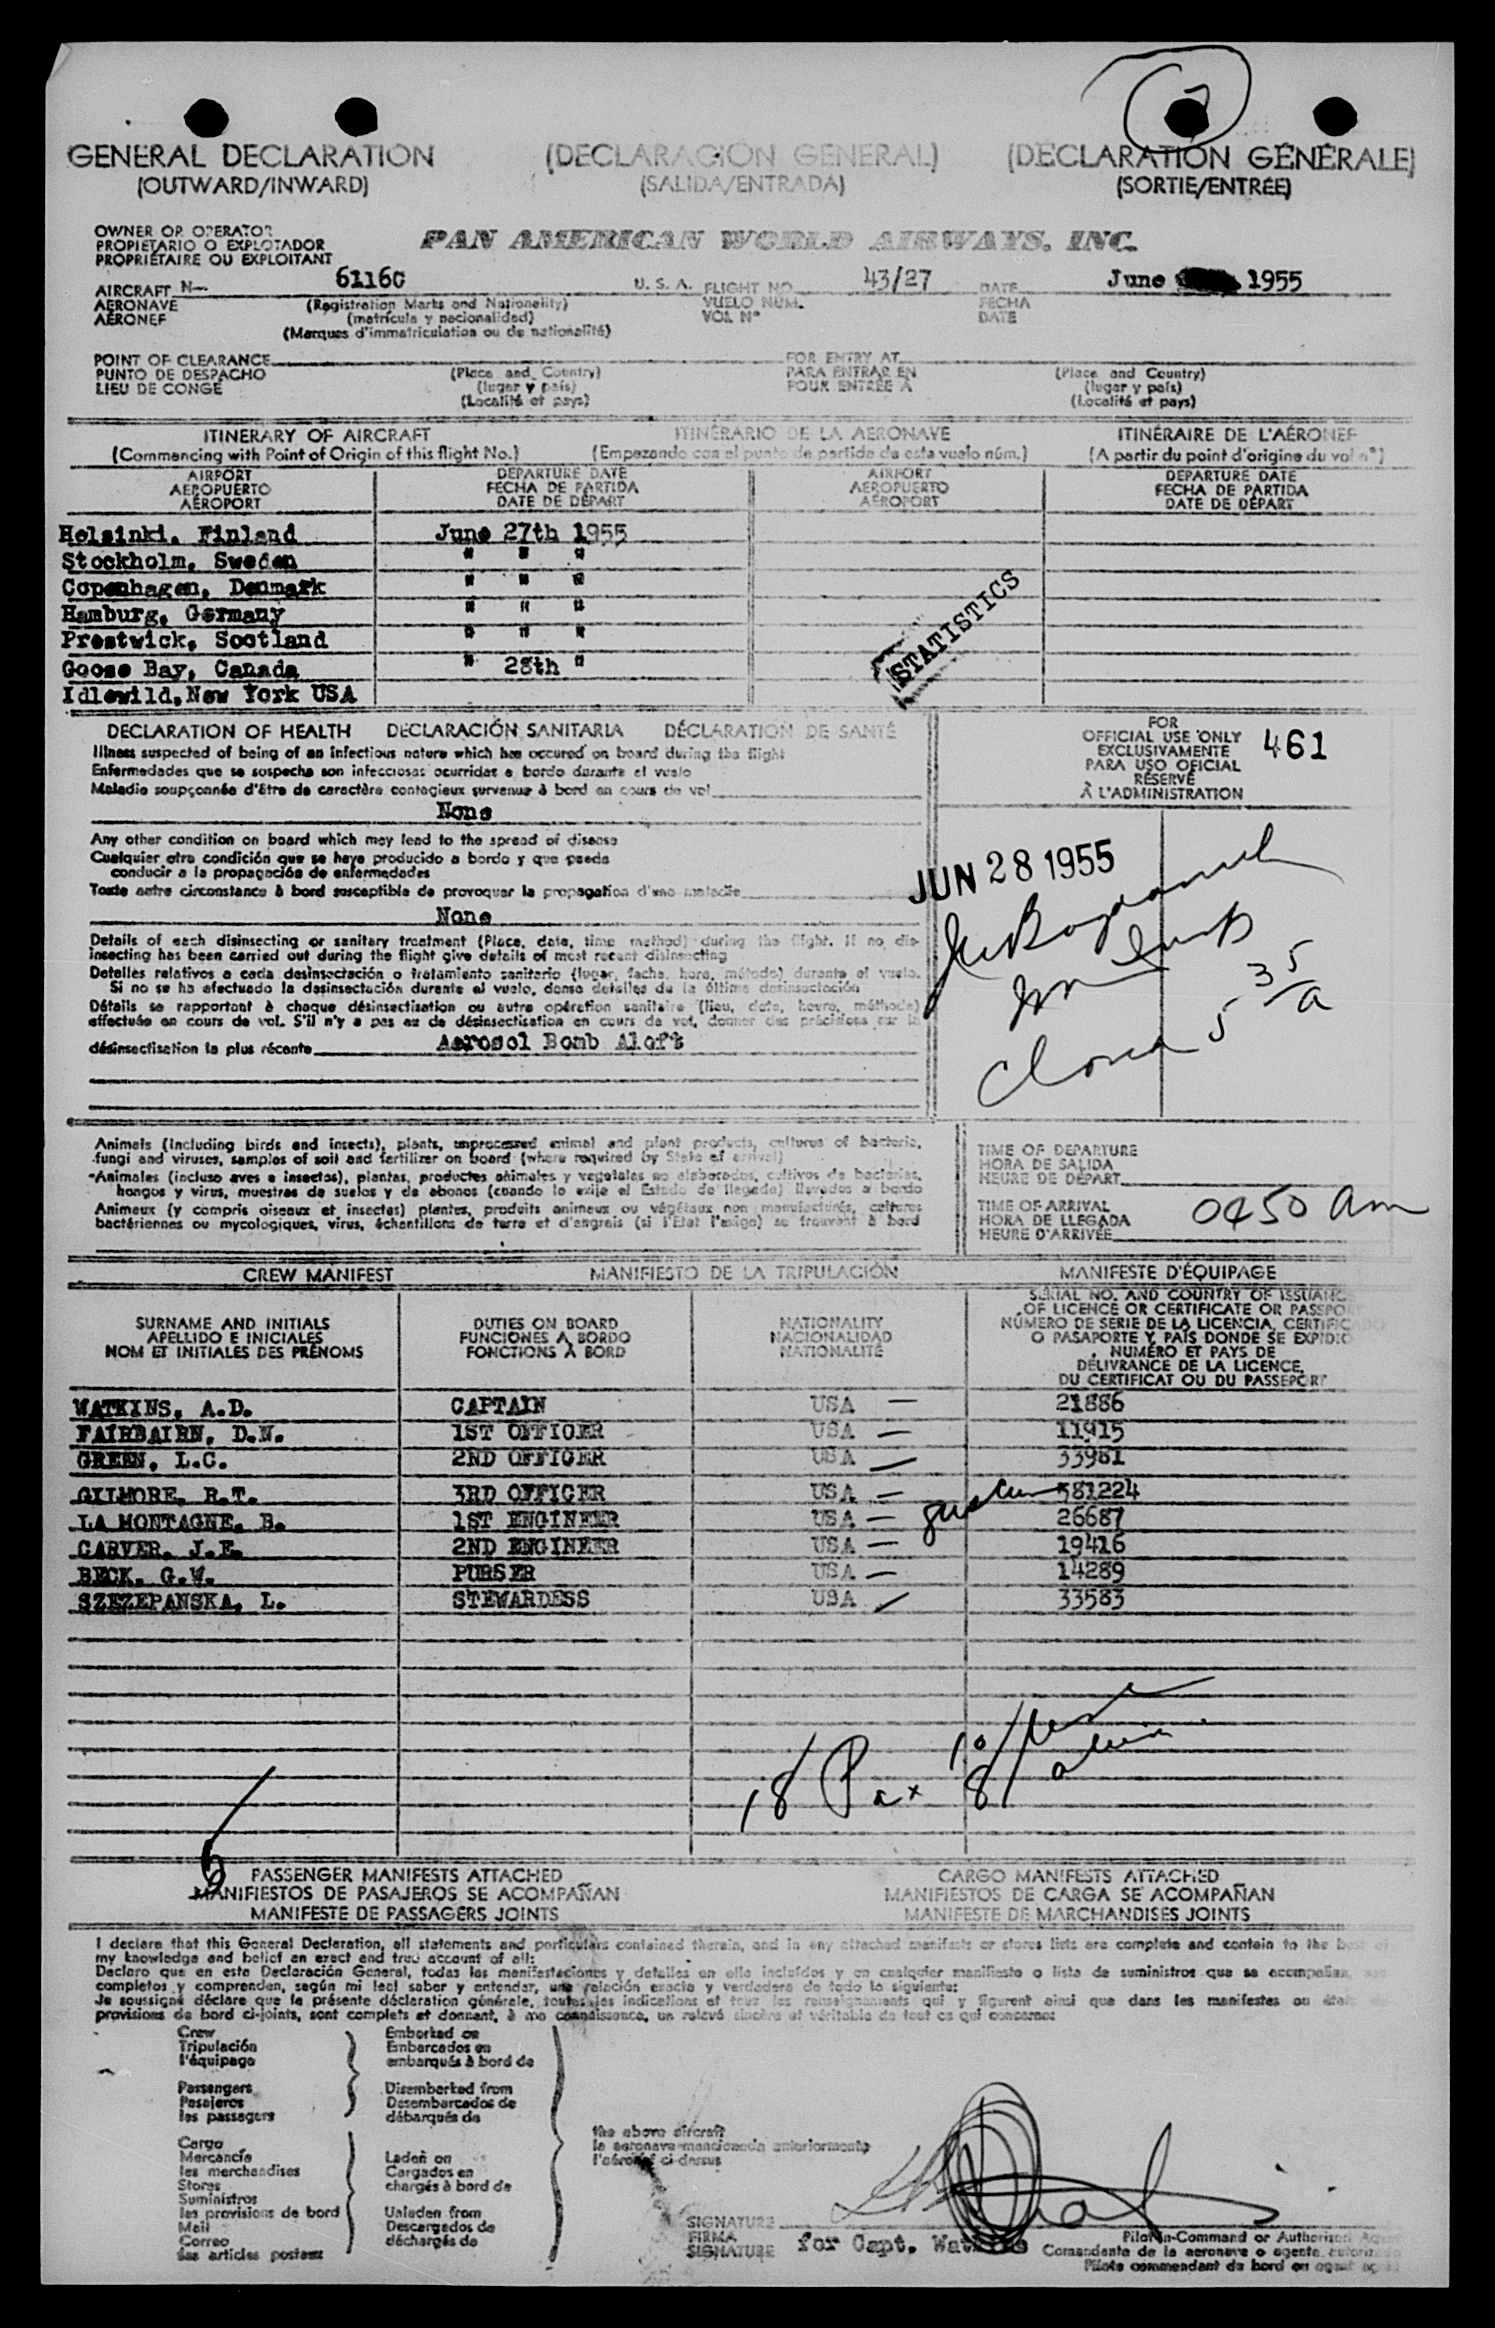 GENERAL DECLARATION (DECLARACIÓN GENERAL) (DÉCLARATION GÉNÉRALE)
(OUTWARD/INWARD) (SALIDA/ENTRADA) (SORTIE/ENTRÉE)
OWNER OR OPERATOR
PROPIETARIO O EXPLOTADOR
PROPRIÉTAIRE OU EXPLOITANT
PAN AMERICAN WORLD AIRWAYS, INC.
AIRCRAFT N- 6116C U. S. A. FLIGHT NO. 43/27 DATE June 1955
AERONAVE (Registration Marks and Nationality) VUELO NÚM. FECHA
AÉRONEF (matrícula y nacionalidad) VOL Nº DATE
(Marques d'immatriculation ou de nationalité)
POINT OF CLEARANCE FOR ENTRY AT
PUNTO DE DESPACHO (Place and Country) PARA ENTRAR EN (Place and Country)
LIEU DE CONGÉ (lugar y país) POUR ENTRÉE A (lugar y país)
(Localité et pays) (Localité et pays)
ITINERARY OF AIRCRAFT ITINERARIO DE LA AERONAVE ITINÉRAIRE DE L'AÉRONEF
(Commencing with Point of Origin of this flight No.) (Empezando con el punto de partida de esta vuelo núm.) (A partir du point d'origine du vol nº)
AIRPORT DEPARTURE DATE AIRPORT DEPARTURE DATE
AEROPUERTO FECHA DE PARTIDA AEROPUERTO FECHA DE PARTIDA
AÉROPORT DATE DE DÉPART AÉROPORT DATE DE DÉPART
Helsinki, Finland June 27th 1955
Stockholm, Sweden " " "
Copenhagen, Denmark " " "
Hamburg, Germany " " "
Prestwick, Scotland " " "
Goose Bay, Canada " 28th "
Idlewild, New York USA
STATISTICS
DECLARATION OF HEALTH DECLARACIÓN SANITARIA DÉCLARATION DE SANTÉ
Illness suspected of being of an infectious nature which has occured on board during the flight
Enfermedades que se sospecha son infecciosas ocurridas a bordo durante el vuelo
Maladie soupçonnée d'être de caractère contagieux survenue à bord en cours de vol
None
Any other condition on board which may lead to the spread of disease
Cualquier otra condición que se haya producido a bordo y que pueda
conducir a la propagación de enfermedades
Toute autre circonstance à bord susceptible de provoquer la propagation d'une maladie
None
Details of each disinsecting or sanitary treatment (Place, date, time method) during the flight. If no dis-
insecting has been carried out during the flight give details of most recent disinsecting
Detalles relativos a cada desinsectación o tratamiento sanitario (lugar, fecha, hora, método) durante el vuelo.
Si no se ha efectuado la desinsectación durante el vuelo, dense detalles de la última desinsectación
Détails se rapportant à chaque désinsectisation ou autre opération sanitaire (lieu, date, heure, méthode)
effectuée en cours de vol. S'il n'y a pas eu de désinsectisation en cours de vol, donner des précisions sur la
désinsectisation la plus récente Aerosol Bomb Aloft
FOR
OFFICIAL USE ONLY
EXCLUSIVAMENTE
PARA USO OFICIAL
RÉSERVÉ
À L'ADMINISTRATION
461
JUN 28 1955
Closed 5 35/a
Animals (including birds and insects), plants, unprocessed animal and plant products, cultures of bacteria,
fungi and viruses, samples of soil and fertilizer on board (where required by State of arrival)
Animales (incluso aves e insectos), plantas, productos animales y vegetales no elaborados, cultivos de bacterias,
hongos y virus, muestras de suelos y de abonos (cuando lo exija el Estado de llegada) llevados a bordo
Animaux (y compris oiseaux et insectes) plantes, produits animaux ou végétaux non manufacturés, cultures
bactériennes ou mycologiques, virus, échantillons de terre et d'engrais (si l'Etat l'exige) se trouvant à bord
TIME OF DEPARTURE
HORA DE SALIDA
HEURE DE DÉPART
TIME OF ARRIVAL
HORA DE LLEGADA 0450 am
HEURE D'ARRIVÉE
CREW MANIFEST MANIFIESTO DE LA TRIPULACIÓN MANIFESTE D'ÉQUIPAGE
SURNAME AND INITIALS
APELLIDO E INICIALES
NOM ET INITIALES DES PRÉNOMS
DUTIES ON BOARD
FUNCIONES A BORDO
FONCTIONS À BORD
NATIONALITY
NACIONALIDAD
NATIONALITÉ
SERIAL NO. AND COUNTRY OF ISSUANC
OF LICENCE OR CERTIFICATE OR PASSPO
NÚMERO DE SERIE DE LA LICENCIA, CERTIFICADO
O PASAPORTE Y PAÍS DONDE SE EXPIDIO
NUMÉRO ET PAYS DE
DÉLIVRANCE DE LA LICENCE,
DU CERTIFICAT OU DU PASSEPORT
WATKINS, A.D. CAPTAIN USA — 21886
FAIRBAIRN, D.N. 1ST OFFICER USA — 11915
GREEN, L.C. 2ND OFFICER USA — 33981
GILMORE, R.T. 3RD OFFICER USA — 581224
LA MONTAGNE, B. 1ST ENGINEER USA — 26687
CARVER, J.E. 2ND ENGINEER USA — 19416
BECK, G.W. PURSER USA — 14289
SZEZEPANSKA, L. STEWARDESS USA 33583
18 Pax 10/
8/
6
PASSENGER MANIFESTS ATTACHED CARGO MANIFESTS ATTACHED
MANIFIESTOS DE PASAJEROS SE ACOMPAÑAN MANIFIESTOS DE CARGA SE ACOMPAÑAN
MANIFESTE DE PASSAGERS JOINTS MANIFESTE DE MARCHANDISES JOINTS
I declare that this General Declaration, all statements and particulars contained therein, and in any attached manifests or stores lists are complete and contain to the best of
my knowledge and belief an exact and true account of all:
Declaro que en esta Declaración General, todas las manifestaciones y detalles en ella incluídos y en cualquier manifiesto o lista de suministros que se acompañan,
completos y comprenden, según mi leal saber y entender, una relación exacta y verdadera de todo lo siguiente:
Je soussigné déclare que la présente déclaration générale, toutes les indications et tous les renseignements qui y figurent ainsi que dans les manifestes ou
provisions de bord ci-joints, sont complets et donnent, à ma connaissance, un relevé sincère et véritable de tout ce qui concerne:
Crew Embarked on
Tripulación Embarcados en
l'équipage embarqués à bord de
Passengers Disembarked from
Pasajeros Desembarcados de
les passagers débarqués de
Cargo
Mercancía Laden on
les merchandises Cargados en
Stores chargés à bord de
Suministros
les provisions de bord Unladen from
Mail Descargados de
Correo déchargés de
les articles postaux
the above aircraft
la aeronave mencionada anteriormente
l'aéronef ci-dessus
SIGNATURE
FIRMA
SIGNATURE
for Capt. Watkins
Pilot-in-Command or Authorized Agent
Comandante de la aeronave o agente autorizado
Pilote commandant de bord ou agent